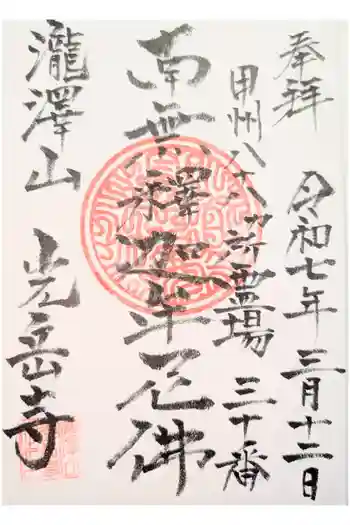 奉拝
令和七年 三月十二日
甲州八十八ヶ所霊場 三十番
南無釋迦牟尼佛
瀧澤山 光岳寺